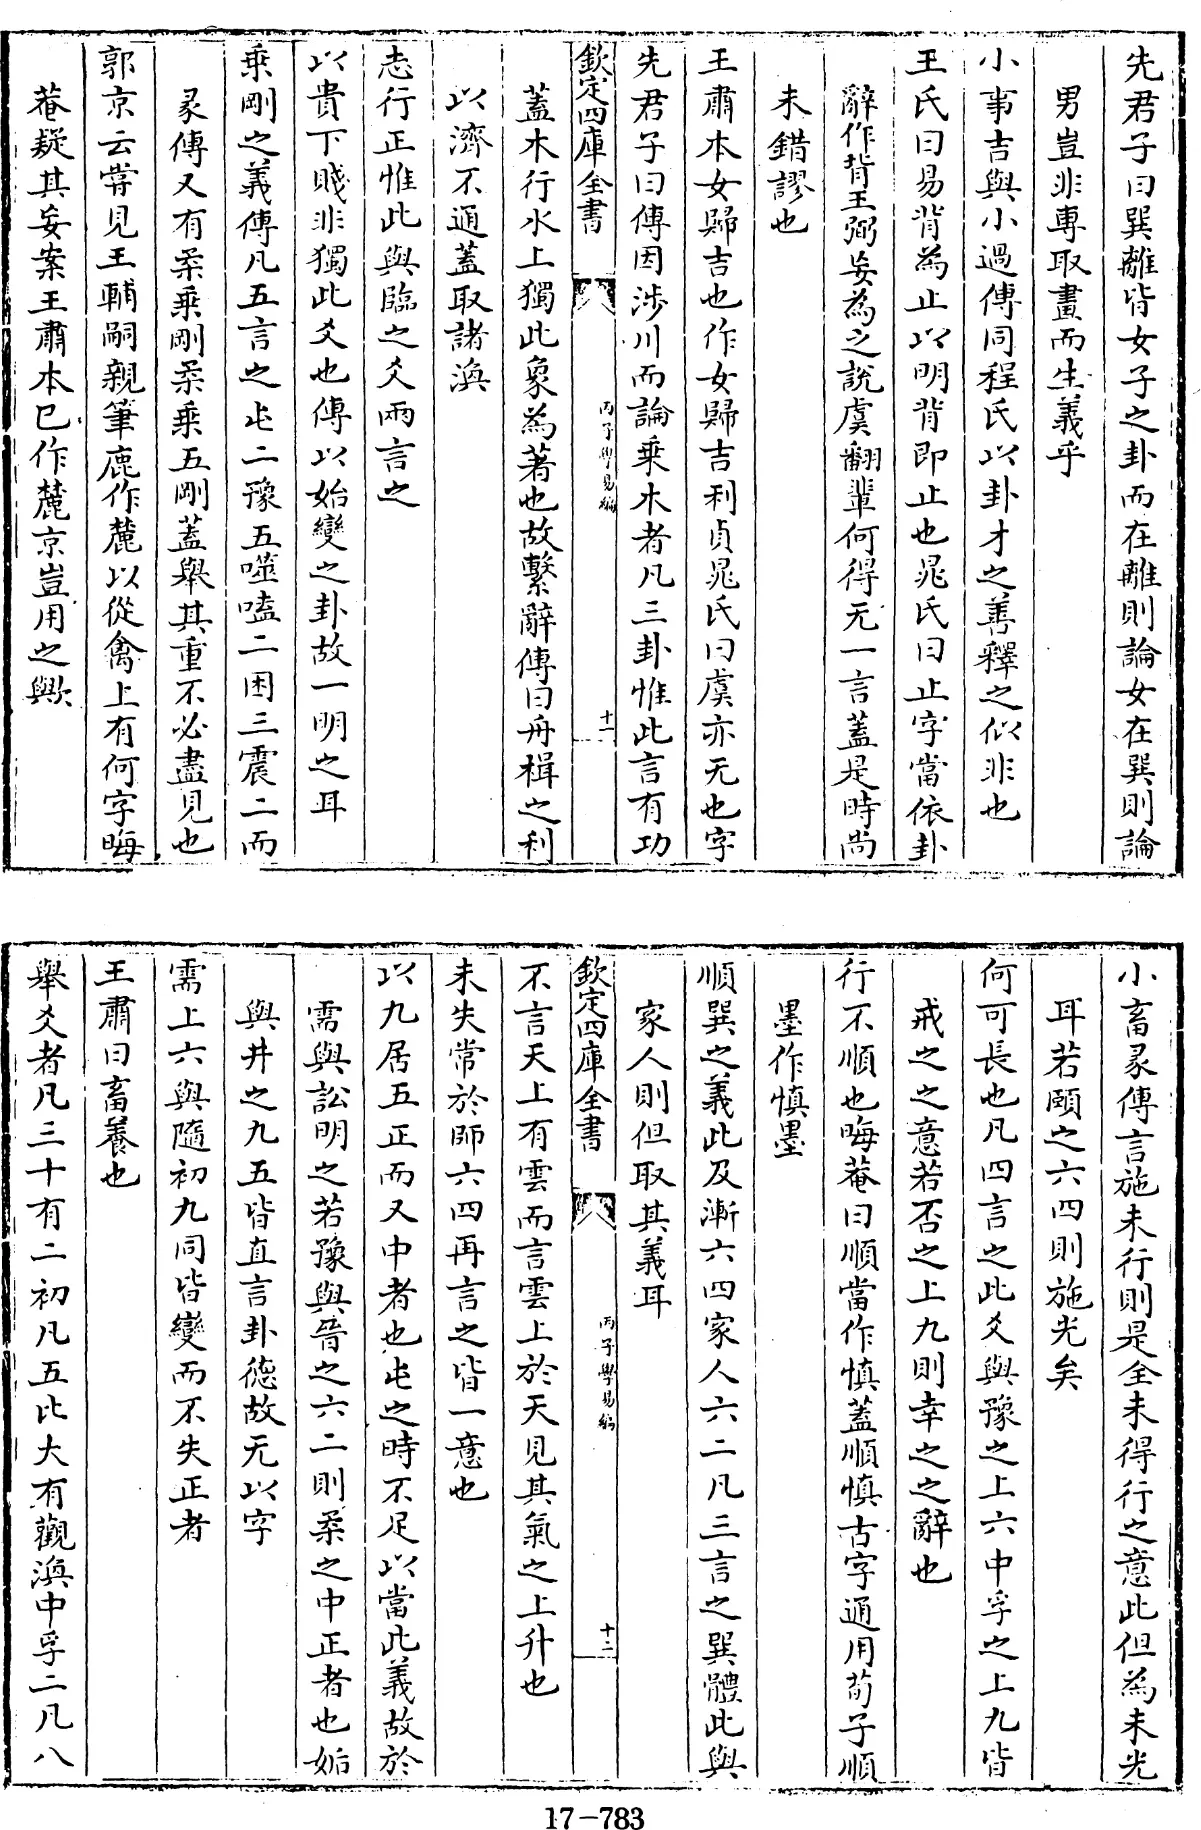 先君子曰巽離皆女子之卦而在離則論女在巽則論
男豈非專取畫而生義乎
小事吉與小過傳同程氏以卦才之善釋之似非也
王氏曰易背為止以明背即止也晁氏曰止字當依卦
辭作背王弼妄為之說虞翻輩何得无一言蓋是時尚
未錯謬也
王肅本女歸吉也作女歸吉利貞晁氏曰虞亦无也字
先君子曰傳因涉川而論乗木者凡三卦惟此言有功
欽定四庫全書
丙子學易編
十一
蓋木行水上獨此象為著也故繫辭傳曰舟楫之利
以濟不通蓋取諸渙
志行正惟此與臨之爻兩言之
以貴下賤非獨此爻也傳以始變之卦故一明之耳
乗剛之義傳凡五言之屯二豫五噬嗑二困三震二而
彖傳又有柔乗剛柔乗五剛蓋舉其重不必盡見也
郭京云嘗見王輔嗣親筆鹿作麓以從禽上有何字晦
菴疑其妄案王肅本已作麓京豈用之歟
小畜彖傳言施未行則是全未得行之意此但為未光
耳若頤之六四則施光矣
何可長也凡四言之此爻與豫之上六中孚之上九皆
戒之之意若否之上九則幸之之辭也
行不順也晦菴曰順當作慎蓋順慎古字通用荀子順
墨作慎墨
順巽之義此及漸六四家人六二凡三言之巽體此與
家人則但取其義耳
欽定四庫全書
丙子學易編
十二
不言天上有雲而言雲上於天見其氣之上升也
未失常於師六四再言之皆一意也
以九居五正而又中者也屯之時不足以當此義故於
需與訟明之若豫與晉之六二則柔之中正者也姤
與井之九五皆直言卦德故无以字
需上六與隨初九同皆變而不失正者
王肅曰畜養也
舉爻者凡三十有二初凡五比大有觀渙中孚二凡八
17-783